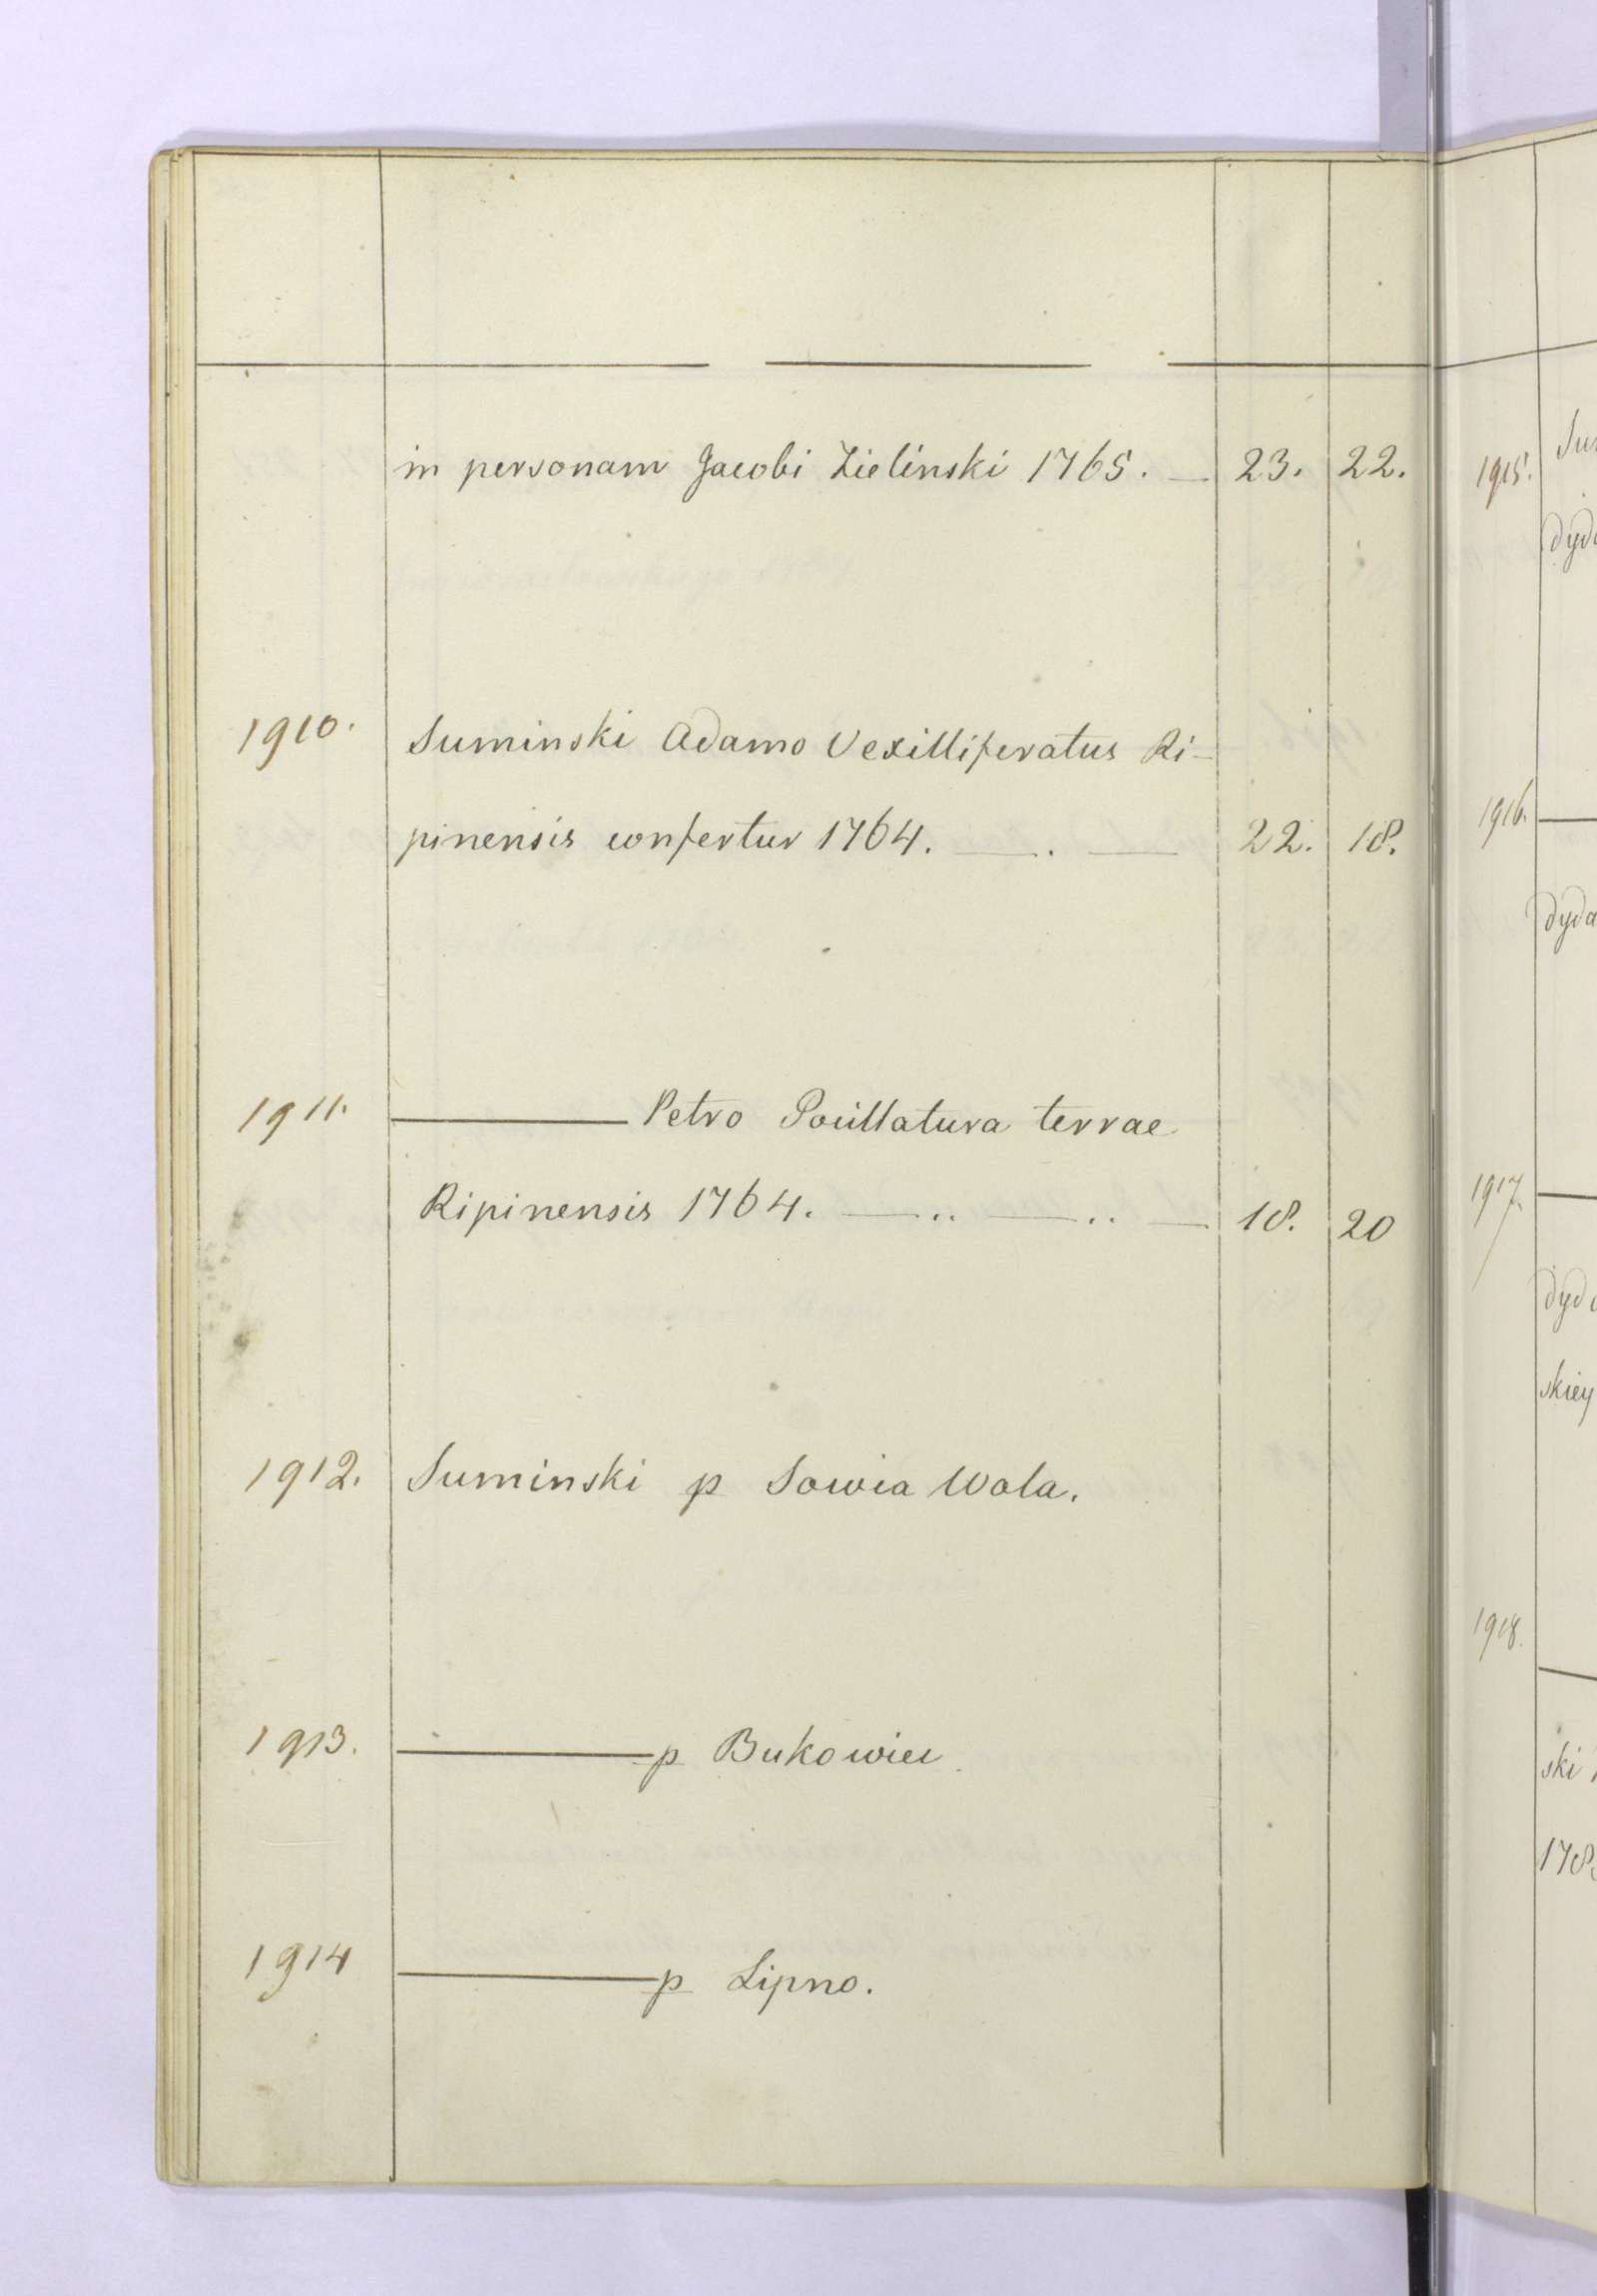 in personam Jacobi Zielinski 1765. — 23. 22.
1910. Suminski Adamo Vexilliferatus Ri-
pinensis confertur 1764. — . — 22. 18.
1911. ——— Petro Pocillatura terrae
Ripinensis 1764. — .. — .. — 18. 20
1912. Suminski p Sowia Wola.
1913. ——— p Bukowiec
1914 ——— p Lipno.
1915. Su
dyd
1916. —
dyda
1917. —
dyd
skiey
1918. —
ski
178